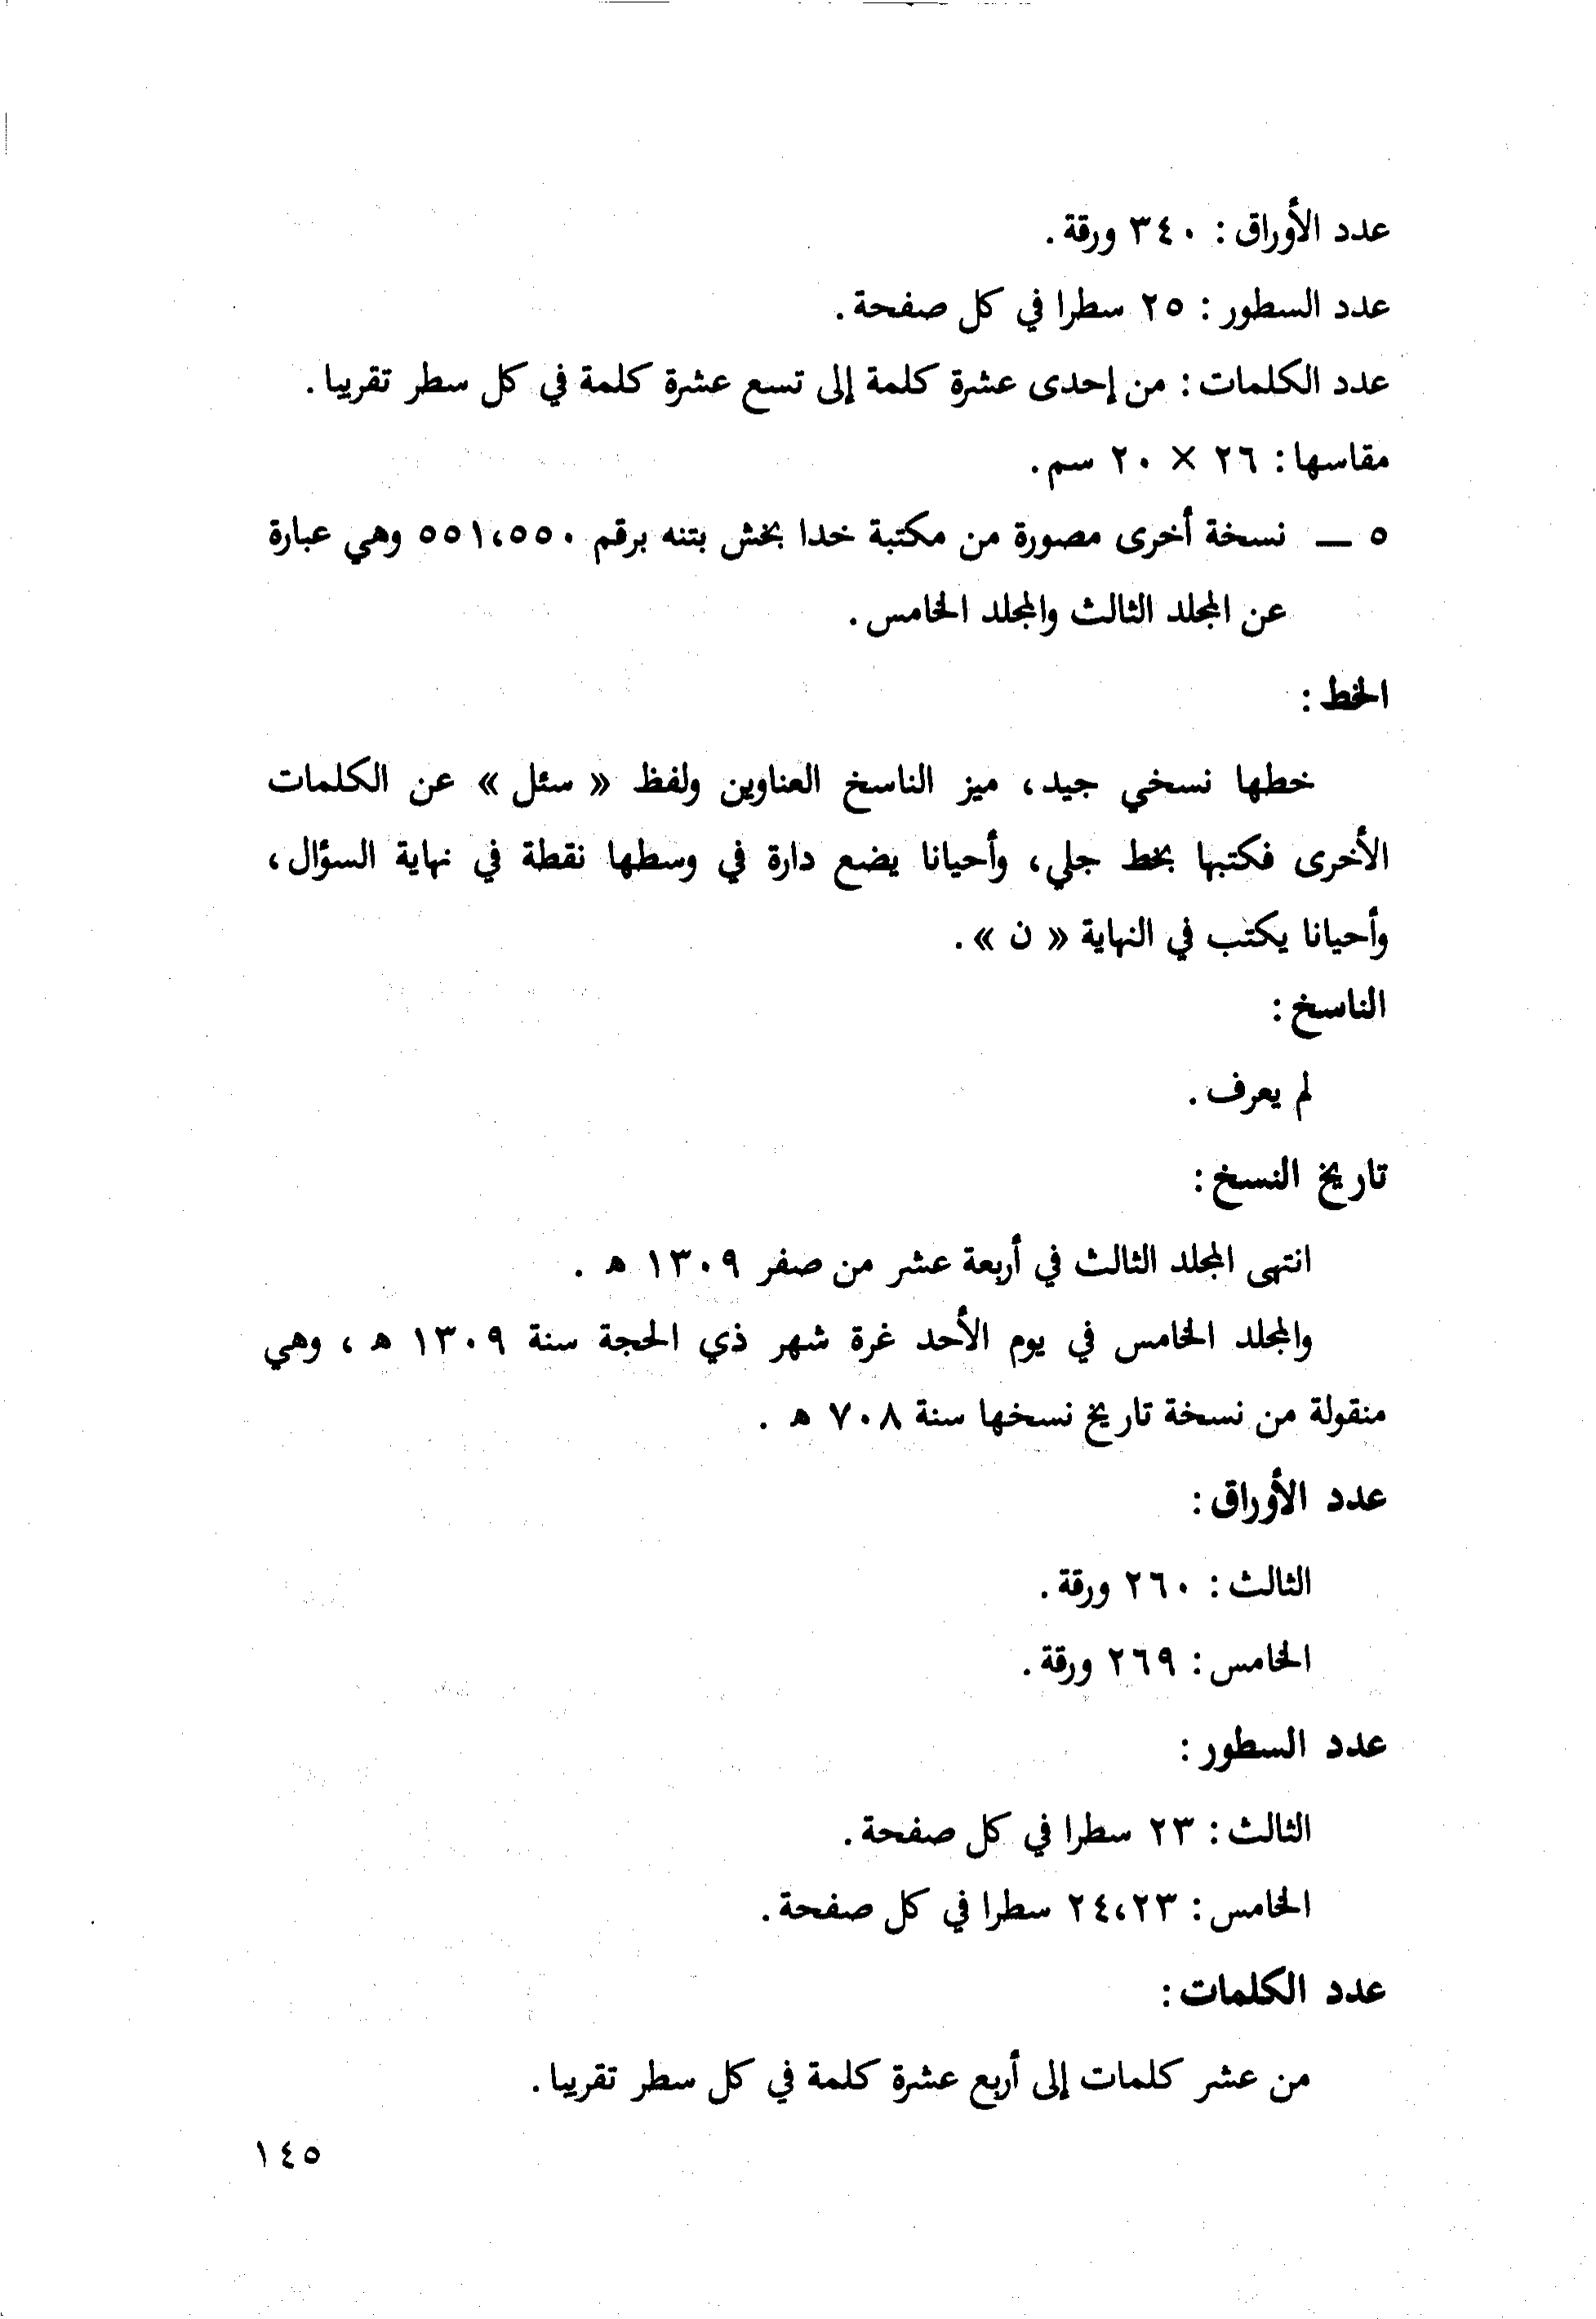 عدد الأوراق : ٣٤٠ ورقة .
عدد السطور : ٢٥ سطرا في كل صفحة .
عدد الكلمات : من إحدى عشرة كلمة إلى تسع عشرة كلمة في كل سطر تقريبا .
مقاسها : ٢٦ × ٢٠ سم .
٥ — نسخة أخرى مصورة من مكتبة خدا بخش بتنه برقم ٥٥١،٥٥٠ وهي عبارة
عن المجلد الثالث والمجلد الخامس .
الخط :
خطها نسخي جيد ، ميز الناسخ العناوين ولفظ « سئل » عن الكلمات
الأخرى فكتبها بخط جلي ، وأحيانا يضع دارة في وسطها نقطة في نهاية السؤال ،
وأحيانا يكتب في النهاية « ن » .
الناسخ :
لم يعرف .
تاريخ النسخ :
انتهى المجلد الثالث في أربعة عشر من صفر ١٣٠٩ ه .
والمجلد الخامس في يوم الأحد غرة شهر ذي الحجة سنة ١٣٠٩ ه ، وهي
منقولة من نسخة تاريخ نسخها سنة ٧٠٨ ه .
عدد الأوراق :
الثالث : ٢٦٠ ورقة .
الخامس : ٢٦٩ ورقة .
عدد السطور :
الثالث : ٢٣ سطرا في كل صفحة .
الخامس : ٢٤،٢٣ سطرا في كل صفحة .
عدد الكلمات :
من عشر كلمات إلى أربع عشرة كلمة في كل سطر تقريبا .
١٤٥